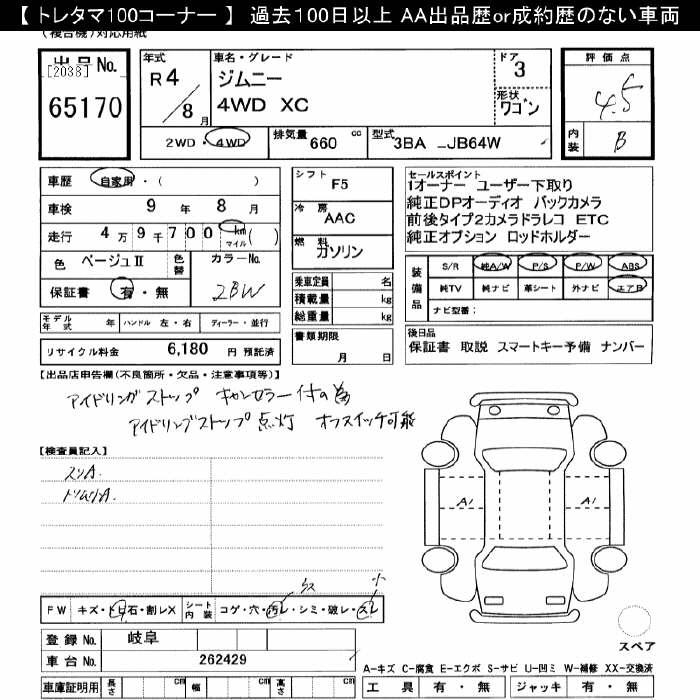 【 トレタマ100コーナー 】 過去100日以上 AA出品歴or成約歴のない車両
(複合機)対応用紙
出品No.
[2038]
65170
年式
R4
8月
車名・グレード
ジムニー
4WD XC
ドア
3
形状
ワゴン
評価点
4.5
内装
B
2WD・4WD
排気量 660 cc
型式 3BA _JB64W
車歴 自家用・( )
車検 9年 8月
走行 4万9千700 km マイル( )
色 ベージュⅡ 色替 カラーNo.
保証書 有・無 2BW
モデル年式 年 ハンドル 左・右 ディーラー・並行
リサイクル料金 6,180 円 預託済
シフト F5
冷房 AAC
燃料 ガソリン
乗車定員 名
積載量 kg
総重量 kg
書類期限
月 日
セールスポイント
1オーナー ユーザー下取り
純正DPオーディオ バックカメラ
前後タイプ2カメラドラレコ ETC
純正オプション ロッドホルダー
装備品
S/R 純A/W P/S P/W ABS
純TV 純ナビ 革シート 外ナビ エアB
ナビ型番:
後日品
保証書 取説 スマートキー予備 ナンバー
【出品店申告欄(不良箇所・欠品・注意事項等)】
アイドリングストップ キャンセラー付の為
アイドリングストップ 点灯 オフスイッチ可能
【検査員記入】
スリA.
A1 A1
FW キズ・トビ石・割レX シート内装 コゲ・穴・汚レ・シミ・破レ・スレ
小
登録No. 岐阜
車台No. 262429
車庫証明用 長さ cm 幅 cm 高さ cm
スペア
A-キズ C-腐食 E-エクボ S-サビ U-凹ミ W-補修 XX-交換済
工具 有・無 ジャッキ 有・無